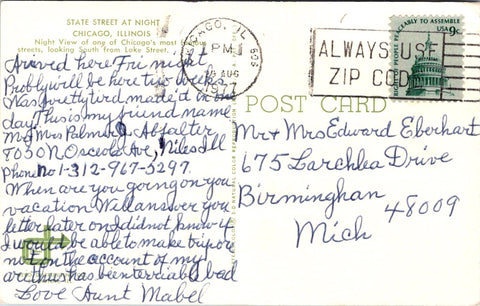 STATE STREET AT NIGHT
CHICAGO, ILLINOIS
Night View of one of Chicago's most famous
streets, looking South from Lake Street.
Arived here Fri night
Probly will be here two weeks
Was pretty tird made it in one
day. This is my friend name
Mrs Palmer J. Alfalter
8030 N Osceola Ave, Niles Ill
Phone no 1-312-967-5297.
When are you going on you
vacation. Will answer you
letter later on I did not know if
I would be able to make trip or
not on the account of my
arethus has been terriable bad
Love Aunt Mabel
CHICAGO, IL
PM
AUG
1977
606
ALWAYS USE
ZIP CODE
PEOPLE PEACEABLY TO ASSEMBLE
USA 9c
POST CARD
Mr + Mrs Edward Eberhart
675 Larchlea Drive
Birminghan
Mich 48009